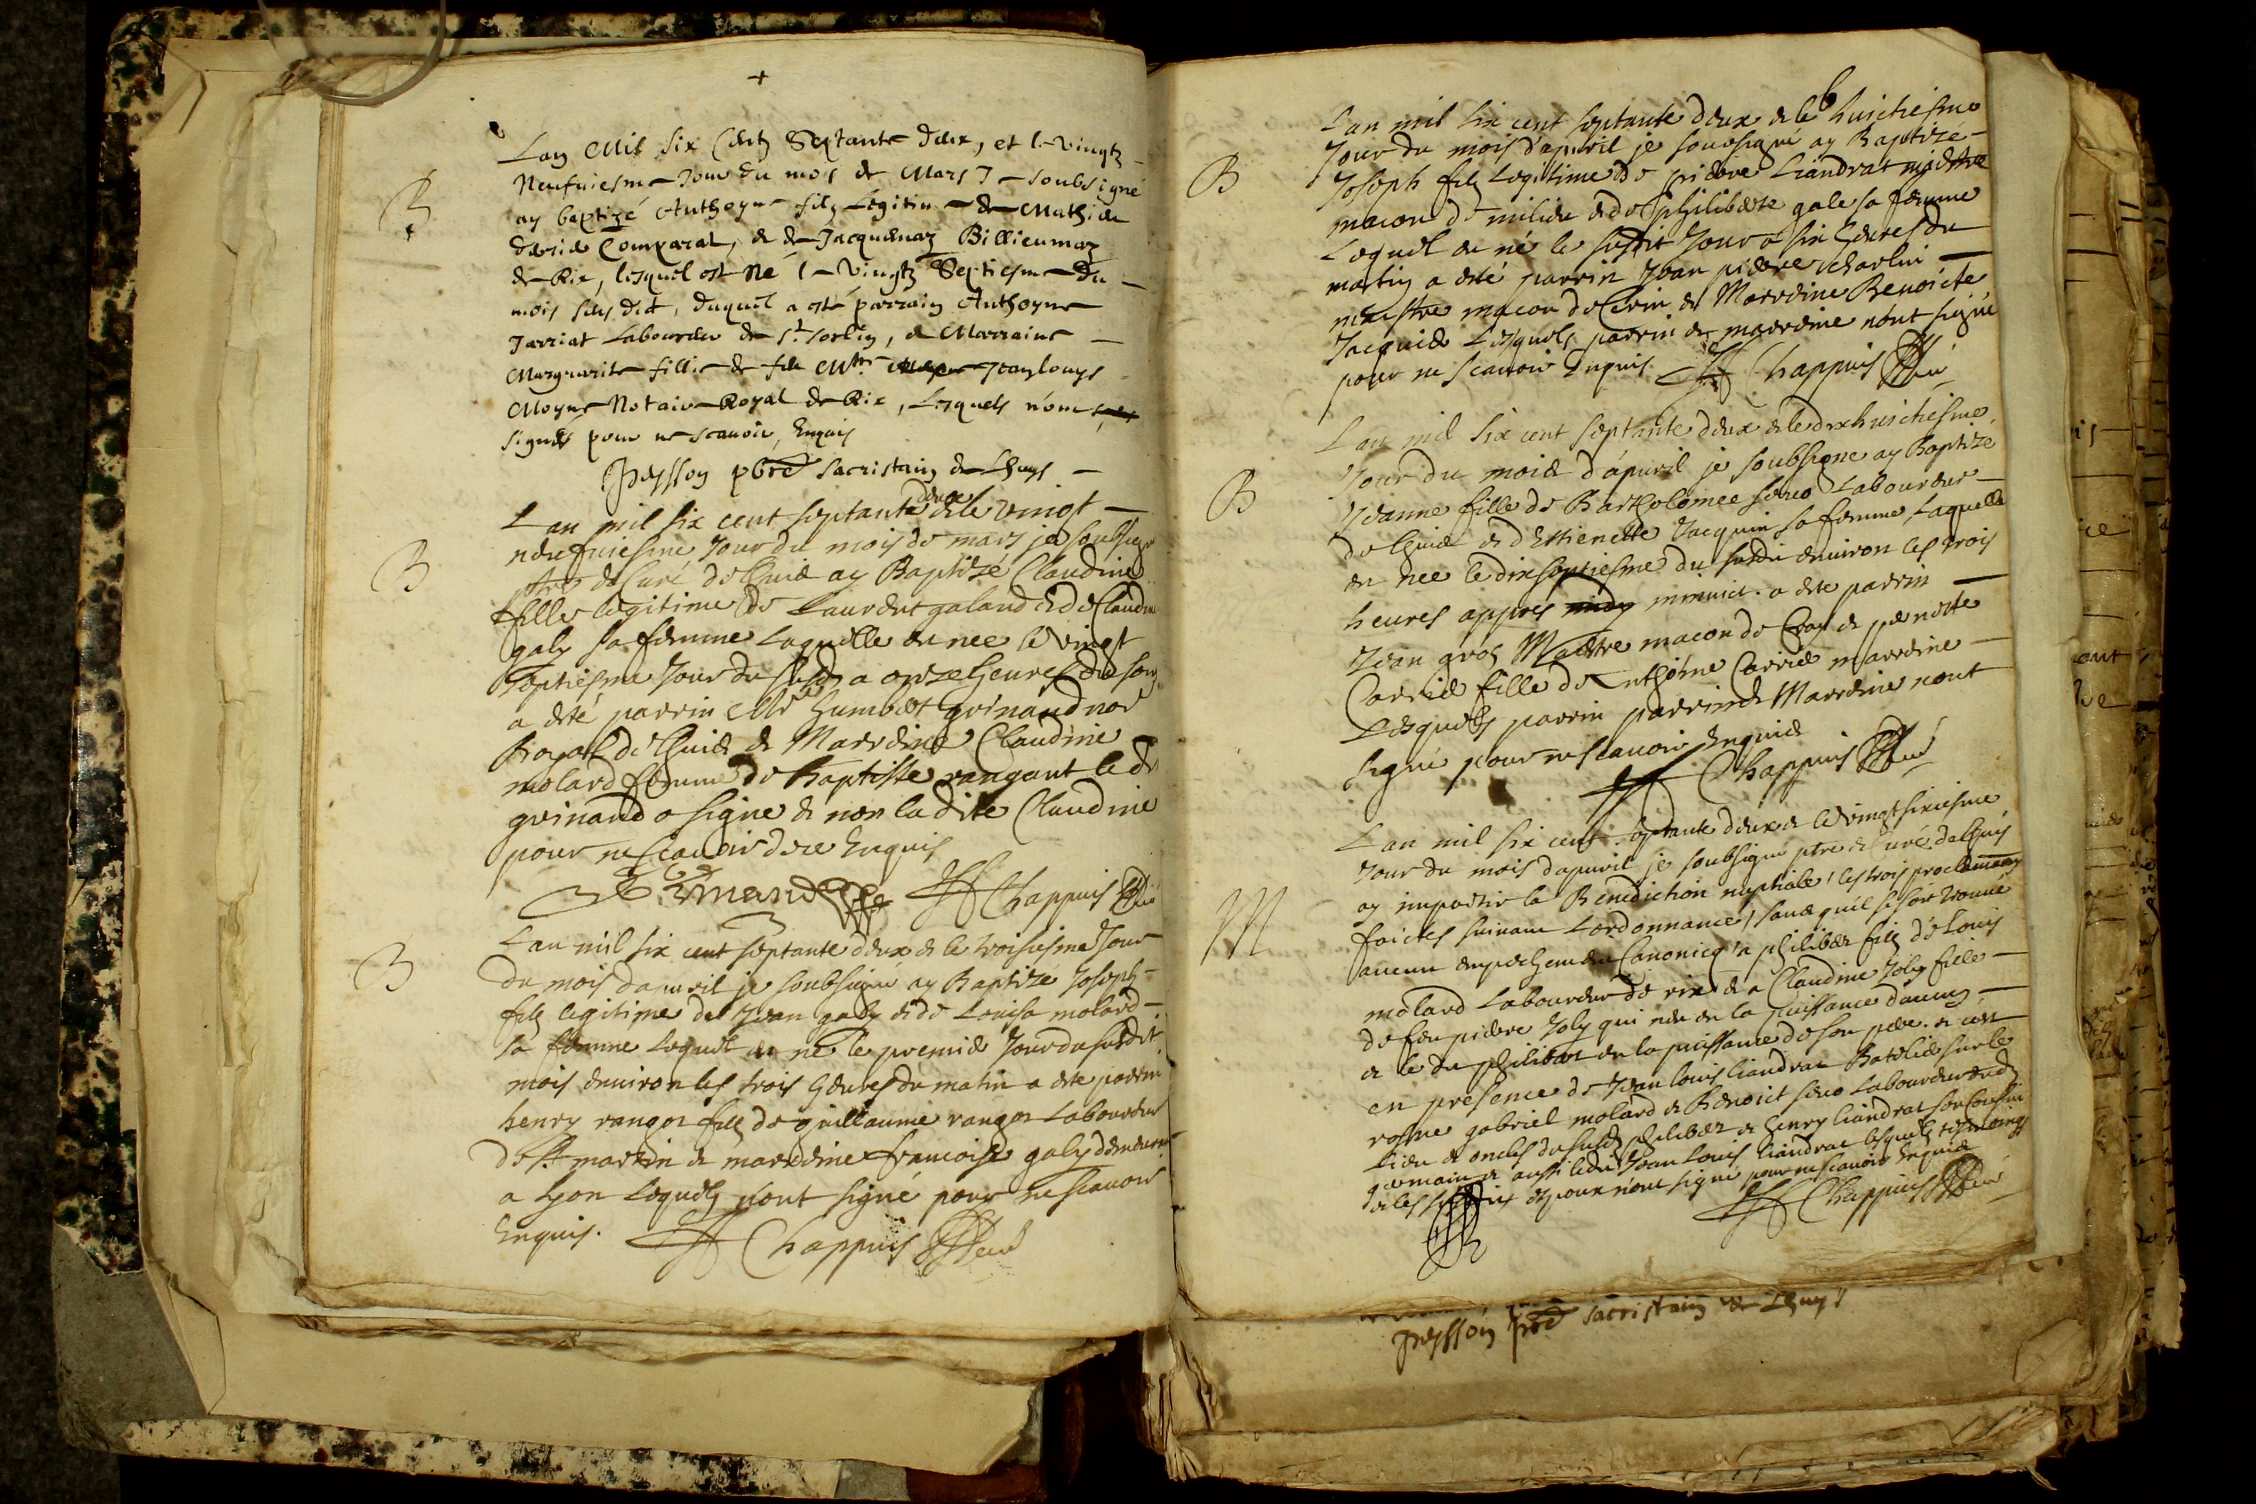 +
B
Lan Mil Six Centz Septante deux, et le vingtz
Neufviesme Jour du mois de Mars Je soubsigné
ay baptizé Anthoyne filz Legitime de Mathieu
Comparat, & de Jacquemaz Billieumaz
de Rix, lesquel est né le vingtz Septiesme du
mois sus dict, duquel a esté parrain Anthoyne
Jarriat Laboureur de St. Sorlin, & Marraine
Marguerite fillie de feu Mtre Jean Louys
Moyne Notaire Royal de Rix, Lesquels n'ont
signés pour ne scavoir, Enquis
Peysson pbre Sacristain de Lhuys
B
Lan mil six cent septante deux & le vingt
neufviesme Jour du mois de mars je soubsigné
ptre & Curé de Lhuis ay Baptizé Claudine
fille legitime de Laurent galand & de Claudine
galy sa femme Laquelle est nee le vingt
septiesme Jour du susd a onze heures du soir
a esté parrin Mr humbert grinand nore
Royal de Lhuis & Marreine Claudine
molard femme de Baptiste rangant le dt
grinand a signe & non la dite Claudine
pour ne scavoir de ce Enquis
Chappuis Curé
B
Lan mil six cent septante deux & le troisiesme Jour
du mois dapuril je soubsigné ay Baptize Joseph
filz legitime de Jean galy & de Louise molard
sa femme Lequel est né le premier Jour du susdit
mois environ les trois heures du matin a este parrin
henry rangot filz de guillaume rangot Laboureur
de St martin & marreine francoise galy demeurant
a Lyon Lequels n'ont signé pour ne scavoir
Enquis. Chappuis Curé
B
Lan mil six cent septante deux & le huictiesme
Jour du mois d'apuril je soubsigné ay Baptizé
Joseph filz Legitime de pierre Liandrat maitre
macon de milieu & de philiberte gale sa femme
Lequel est né le susdit Jour a six heures du
matin a esté parrin Jean pierre charlin
maistre macon de Cerin & Marreine Benoicte
Jacquier Lesquels parrin & marreine nont signé
pour ne scavoir Enquis. Chappuis Curé
B
Lan mil six cent septante deux & le dixhuictiesme
Jour du mois d'apuril je soubsigne ay Baptizé
Jeanne fille de Bartholomee Laboureur
de Lhuis & d'Ettienette Jacquin sa femme Laquelle
est nee le dixseptiesme du susdit environ les trois
heures appres minuict. a este parrin
Jean gros Maistre macon de & pernette
Carrier fille de Anthoine Carrier marreine
Lesquels parrin parrin & Marreine nont
signé pour ne scavoir Enquis
Chappuis Curé
M
Lan mil six cent septante deux & le vingtsixiesme
Jour du mois dapuril je soubsigné ptre & Curé de Lhuis
ay impartir la Benediction nuptiale, les trois proclamaons
faictes suivant Lordonnance, sans quil se soit trouvé
aucun empechement Canonicq, a philibert filz de Louis
molard Laboureur de rix & a Claudine Joly fille
de feu pierre Joly qui nest en la puissance daucun
& le dit philibert en la puissance de son pere. & cest
en presence de Jean Louis liandrat Batelier sur le
rosne gabriel molard & Benoict Laboureur dud
Lieu & oncles du susdit philibert & henry liandrat son Cousin
germain & aussi ledit Jean Louis liandrat lesquels tesmoings
& les Epoux n'ont signé pour ne scavoir Enquis
Chappuis Curé
Peysson pbre Sacristain de Lhuys